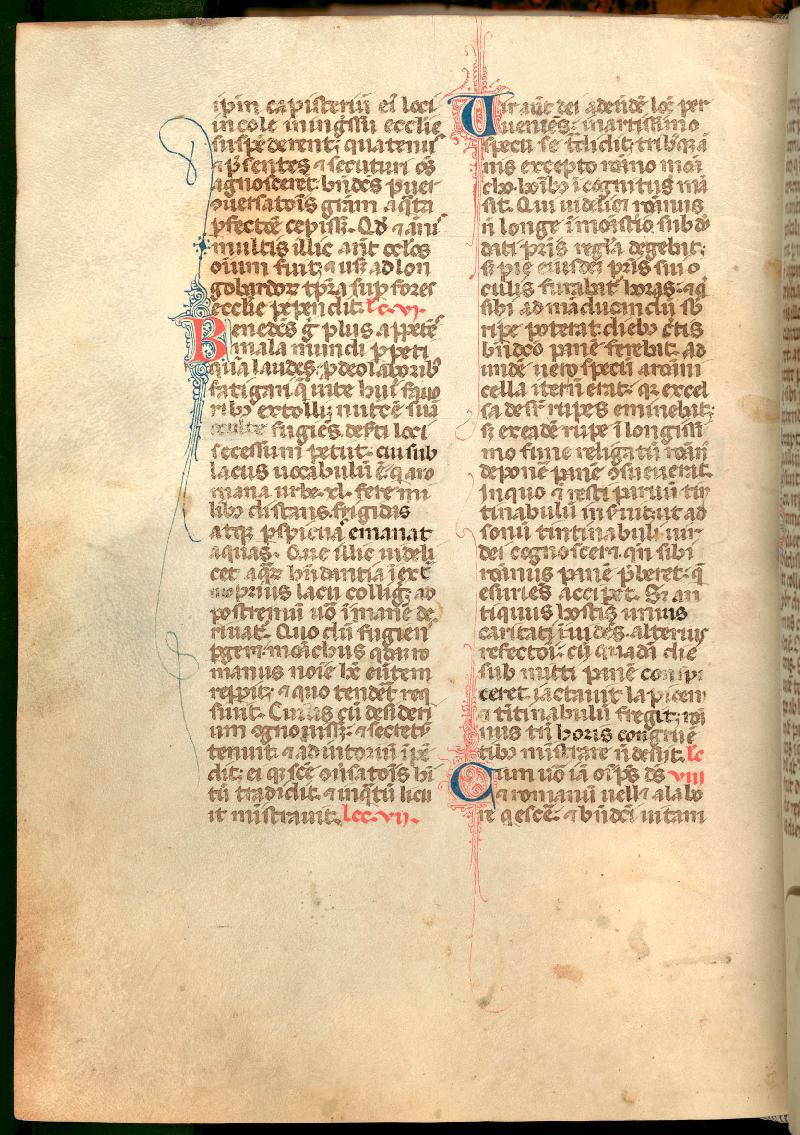 ipm̄ capisteriū eī loci
incole in ingr̄ssu ecclīe
suspēderent: quatenus
⁊ p̄sentes ⁊ secuturi oēs
agnosceret: bn̄dc̄s puer
ↄuersatōis gr̄am a q̄ta
ꝑfectōe cepiss̄. Qd̓ ⁊ ānis
multis illic ant̄ oclōs
oīum fuit: ⁊ usq̄ ad lon
gobardoꝝ tꝑa sup fores
ecclīe pepēdit. lc̄. vi.
Benedc̄s g̊ plus appetēs
mala mundi ꝑpeti
quā laudes: ꝓ deo laborib̓
fatigari q̄ uite hui̓ fauo
rib̓ extolli: nutcē suā
occulte fugiēs. dēs̄ti loci
secessum petiit. cui sub
lacus uocabulū ē: q̄ a ro
mana urbe .xl. fere mi
lib̓ distans. frigidas
atq̄ ꝑspicuā emanat
aquas. Que illic uideli
cet aq̄ꝝ hn̄dantia ī ext̄
so prius lacu colligit̄: ad
postremū uō ī mane de
riuat̄. Quo dū fugiens
pgeret: monēchus qdā ro
manus noīe hc̄ eūtem
repꝑit: ⁊ quo tendēt req
siuit. Cuius cū desideri
um ogno uiss̄: ⁊ secretū
tenuit ⁊ adiutoriū īpē
dit: ei q̄ sc̄e ↄūsatōis hī
tū tradidit. ⁊ inq̄tū licu
it mīstrauit. lcc. vii.
Uir aut̄ dei ad eūdē locū per
ueniēs: in artissimo
specu se t̄didit: trib̓ qꝫ ā
nis excepto rōmo mōa
cho. hoīb̓ ī cognitus mā
sit. Qui uidelicet rōmus
ñ longe ī mōistio sub dō
dati pr̄is regl̄a degebat:
sꝫ pie eiusdem pr̄is sui o
culis furabat̄ horas: ⁊ q̄
sibi ad māducandū sb
ripe poterat: dieb̓ c̄tis
bn̄dc̄o panē ferebat. ad
undē uero specū a rōmi
cella iter ñ erat: qꝛ excel
sa desr̄ rupes eminebat:
sꝫ ex eadē rupe ī longissi
mo fune religatū rōan̄
deponē panē ↄsueuerat.
In quo ⁊ resti paruū tin
tinabulū inseruit: ut ad
sonū tintinabuli uir
dei cognosceret: qn̄ sibi
rōmus panē p̄beret: q̄
exiens accipet. Sꝫ an
tiquus hostis unius
caritati īuidēs. alterius
refectōi: cū quadā die
sub mitti panē conspi
ceret. iactauit lapidem
⁊ tītinabulū fregit: rōm̄
nus tn̄ horis congrue
tib̓ mīstrare ñ desiit. lc̄
Cum uō iā oīps ds̄ viii
⁊ romanū uell̄ a labo
re q̄escē: ⁊ bn̄dc̄i uitam